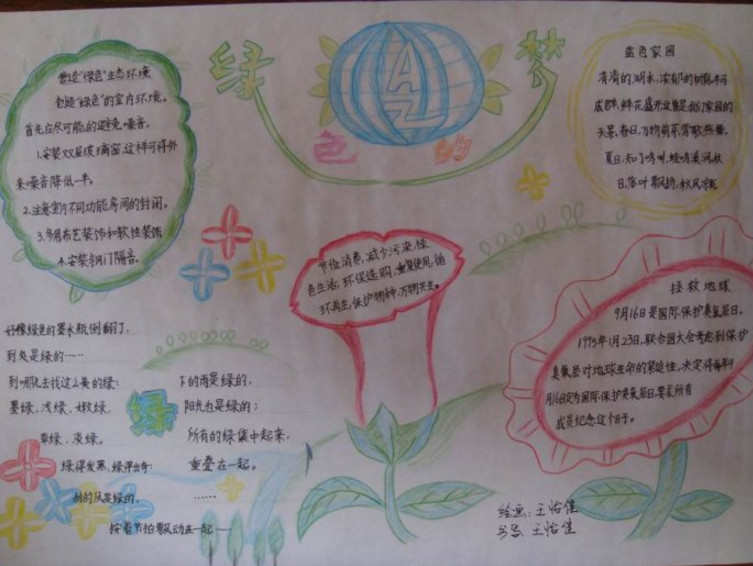 绿色的梦
创造"绿色"生态环境
创造"绿色"的室内环境。
首先应尽可能的避免噪音。
1.安装双层玻璃窗,这样可将外
来噪音降低一半。
2.注意室内不同功能房间的封闭。
3.多用布艺装饰和软性装饰
4.安装钢门隔音。
蓝色家园
清清的湖水,浓郁的树郁
成群,鲜花盛开这就是我们家园的
美景,春日,万物萌芽莺歌燕舞。
夏日,知了鸣叫,蛙鸣
日,落叶飘扬,秋风
节俭消费,减少污染,绿
色生活,环保选购,重复使用,循
环再生,保护物种,万物共生。
拯救地球
9月16日是国际保护臭氧层日。
1995年1月23日,联合国大会考虑到保护
臭氧层对地球生命的紧迫性,决定将每年9
月16日定为国际保护臭氧层日,要求所有
成员纪念这个日子。
好像绿色的墨水瓶倒翻了,
到处是绿的……
到哪儿去找这么美的绿:
墨绿、浅绿、嫩绿、
翠绿、淡绿、
绿得发黑、绿得出奇
刮的风是绿的,
绿
下的雨是绿的,
阳光也是绿的;
所有的绿集中起来,
重叠在一起。
……
按着节拍飘动在一起……
绘画:王怡佳
书写:王怡佳